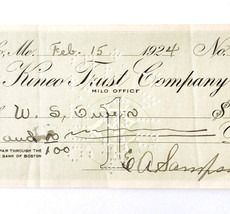 o, Me. Feb. 15 1924 No.
Kineo Trust Company
MILO OFFICE
W. S. Owen $
and no
100
PAY THROUGH THE
BANK OF BOSTON
E A Samps